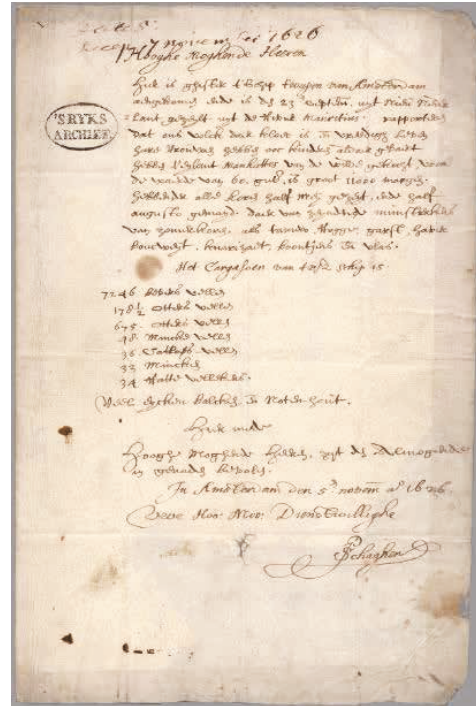 Recep. 7 november 1626
Hooghe Moghende Heeren
'S RYKS
ARCHIEF
Hier is ghister t'schip t'wapen van Amsterdam
aengekomen ende is den 23en septem. uyt Nieu Neder
lant gezeylt uyt de Rivier Mauritius. rapporteren
dat ons volck daer kloec is en vreedigh leven
hare vrouwen hebben ooc kinderen aldaer gebaert
hebben t'eylant Manhattes van de wilde gekocht voor
de waerde van 60. guld. is groot 11000 morgen.
hebbende alle koren half mey gezeyt, ende half
augusto gemayd. daer van zeyndende munsterkens
van zomerkoren, als taruwe Rogge, garst, haver
boucweyt, knarizaet, boontjens en vlas.
Het Cargasoen van t'vsz schip is
7246 Bevers vellen
178½ Otters vellen
675. Otters vellen
48 Mincke vellen
36 Catloes vellen
33 Mincken
34 Ratte vellekens
Veel eycken balcken en Noten hout.
Hier mede
Hooghe Moghende Heeren, zyt den Almogende
in genade bevolen.
In Amsterdam den 5en novem ao 1626.
Uwe Hoo: Moo: Dienstwillighe
P Schaghen